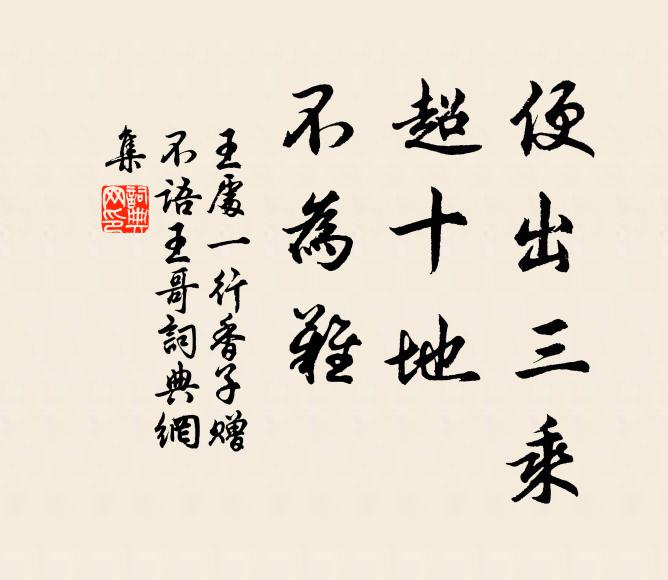 便出三乘
超十地
不為難
王處一行香子赠
不語王哥詞典網
集
詞典
网印